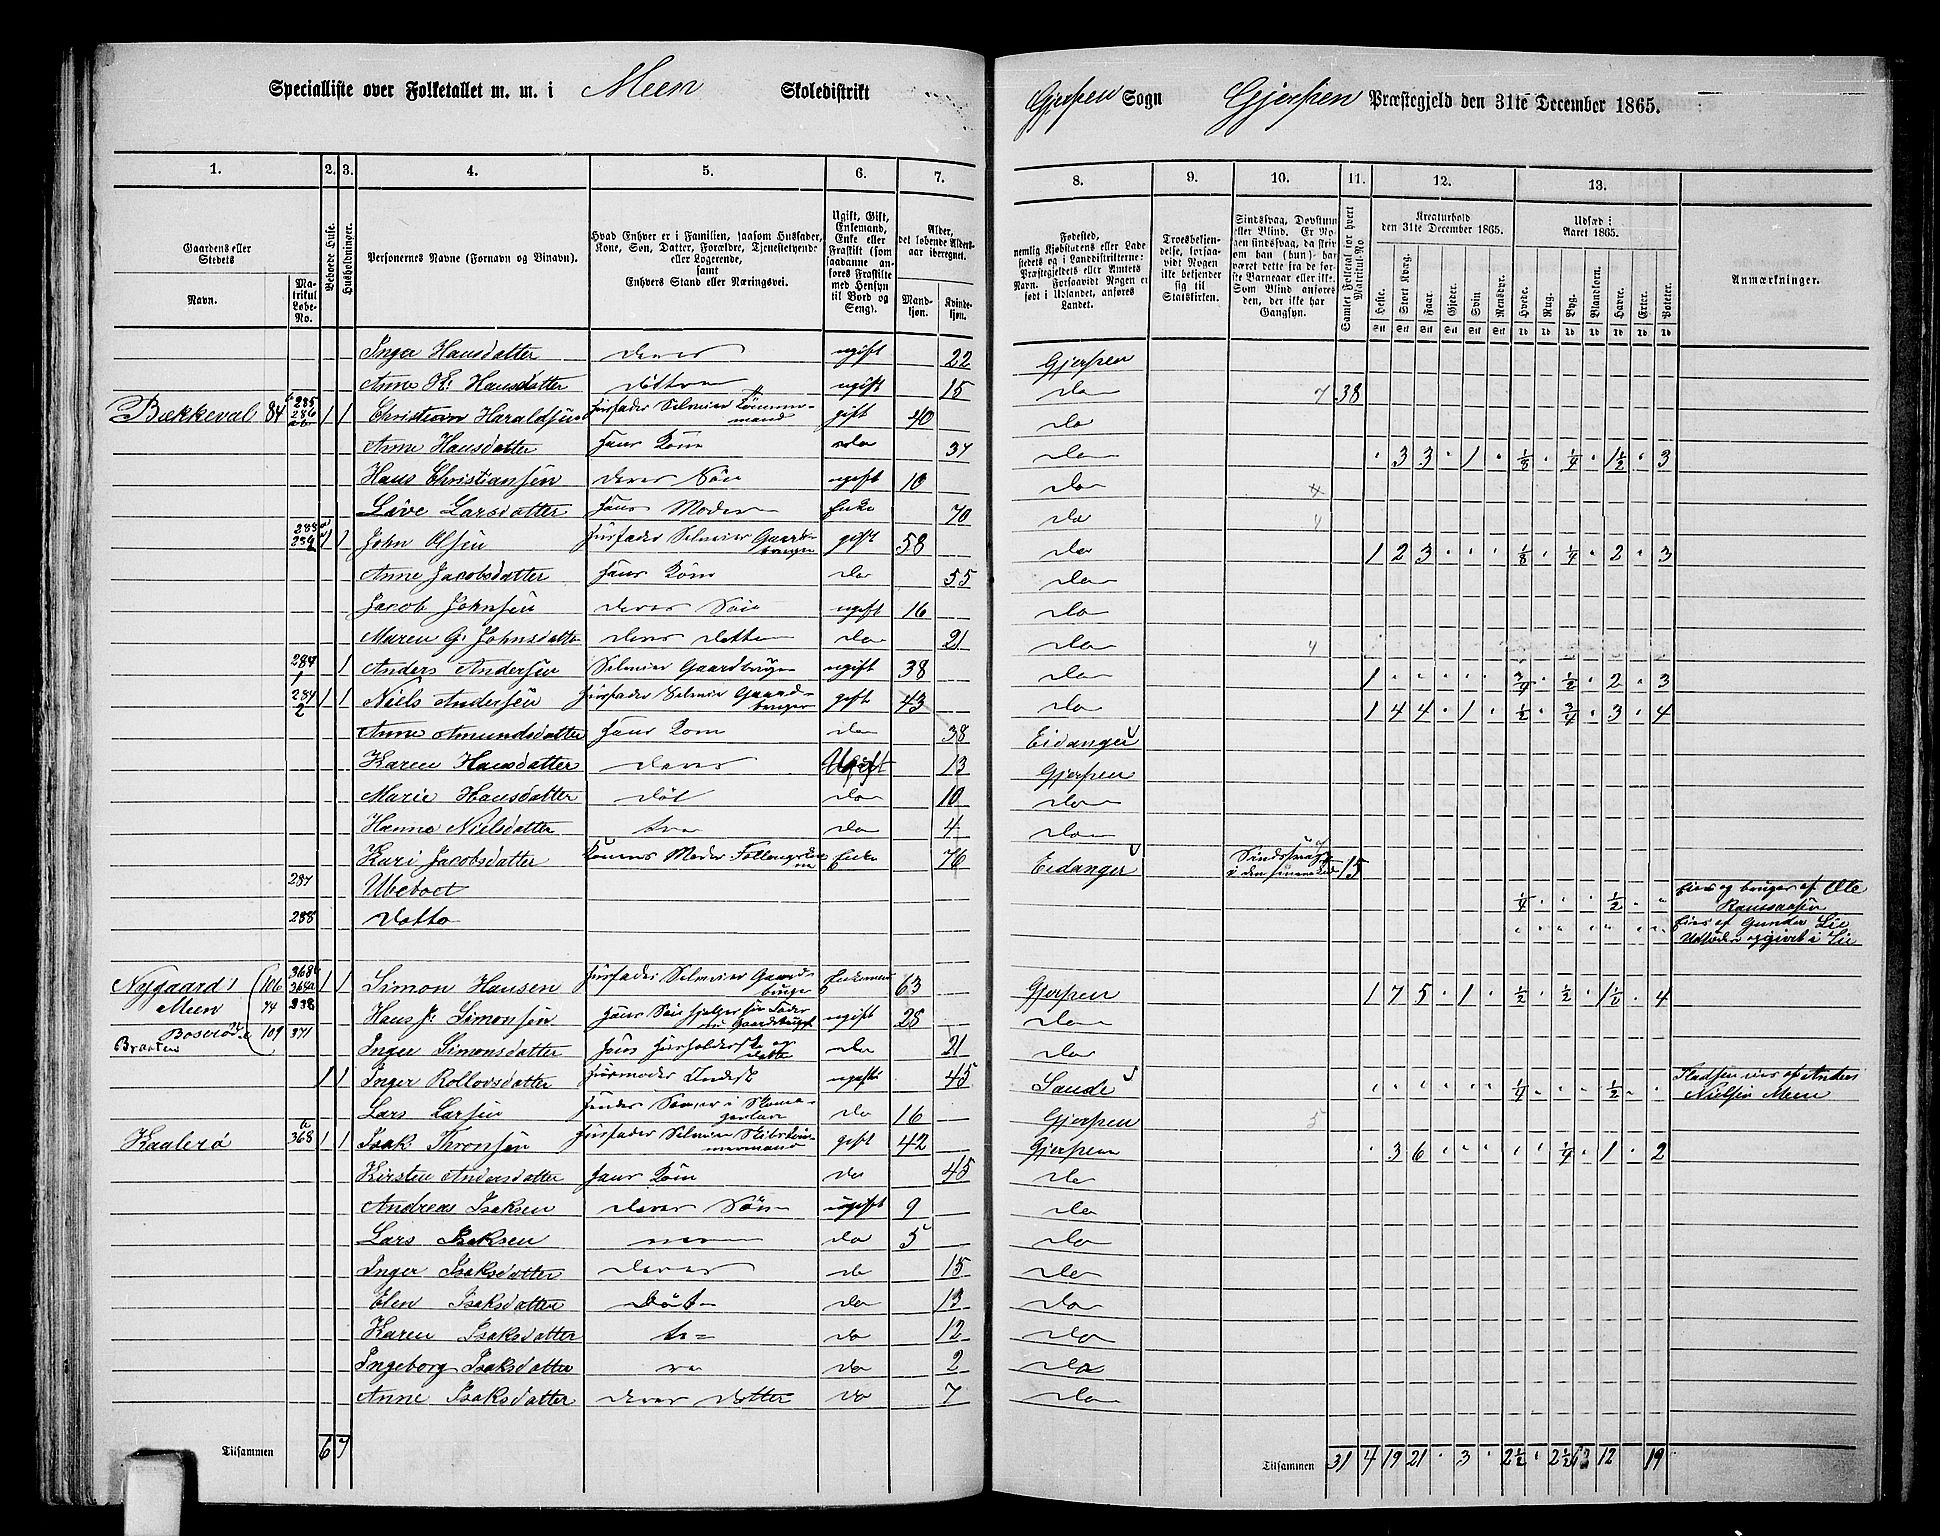 Specialliste over Folketallet m. m. i Meen Skoledistrikt
Gjerpen Sogn Gjerpen Præstegjeld den 31te December 1865.
1. 2. 3. 4. 5. 6. 7.
8. 9. 10. 11. 12. 13.
Gaardens eller Stedets
Navn.
Matrikul Løbe-No.
Beboede Huse.
Husholdninger.
Personernes Navne (Fornavn og Tilnavn).
Hvad Enhver er i Familien, saasom Husfader, Kone, Søn, Datter, Forældre, Tjenestetyende eller Logerende, samt Enhvers Stand eller Næringsvei.
Ugift, Gift, Enkemand, Enke eller Fraskilt (som saadanne anføres Fraskilte med Hensyn til Bord og Seng).
Alder, det løbende Aldersaar iberegnet.
Mandkjøn.
Kvindekjøn.
Fødested, nemlig Kjøbstadens eller Ladestedets og i Landdistrikterne: Præstegjeldets eller Amtets Navn. Forsaavidt Nogen er født i Udlandet, anføres Landet.
Troesbekjendelse, forsaavidt Nogen ikke bekjender sig til Statskirken.
Sindssvag, Døvstum eller Blind.
Samlet Folketal for hvert Matrikul-No.
Kreaturhold den 31te December 1865.
Heste. Stort Kvæg. Faar. Gjeder. Svin. Rensdyr.
Udsæd i Aaret 1865.
Hvede. Rug. Byg. Blandkorn. Havre. Erter. Poteter.
Anmærkninger.
Inger Hansdatter deres ugift 22 Gjerpen
Anne K. Hansdatter døttre ugift 15 do 7 38
Bækkeval 84 285 286 1 1 Christian Haraldsen Husfader Selveier Tømmermand gift 40 do
Anne Hansdatter Hans Kone do 37 do 3 3 1 1/2 3
Hans Christiansen deres Søn ugift 10 do 4
Live Larsdatter Hans Moder Enke 70 do
1 1 John Olsen Husfader Selveier Gaardbruger gift 58 do 1 2 3 1/8 1/4 2 3
Anne Jacobsdatter Hans Kone do 55 do
Jacob Johnsen deres Søn ugift 16 do
Maren G. Johnsdatter deres Datter do 21 do 4
284 1 1 Anders Andersen Selveier Gaardbruger ugift 38 do 1 1/2 2 3
284 2 1 1 Niels Andersen Husfader Selveier Gaardbruger gift 43 do 1 4 4 1 1/2 3/4 3 4
Anne Amundsdatter Hans Kone do 38 Eidanger
Karen Hansdatter deres Ugift 13 Gjerpen
Marie Hansdatter Døt do 10 do
Hanna Nielsdatter tre do 4 do
Kari Jacobsdatter Konens Moder Enke 76 Eidanger Sindssvag 15
287 Ubeboet 1/4 1/2 Eies og bruges af Ole
288 Ditto Eies af Gunder Lie
Udsæden opgivet i Lie
Nygaard 106 368 1 1 Simon Hansen Husfader Selveier Gaardbruger Enkemand 63 Gjerpen 1 7 5 1 1/2 1/2 1 1/2 4
Meen 74 238 Hans J. Simonsen Hans Søn hjelper sin Fader ugift 28 do
Braaten 109 371 Inger Simonsdatter Hans Husholderske og Datter do 21 do
1 1 Inger Rollovsdatter Husmoder ugift 45 Saude 1/4 1/2 Pladsen eies af Anders Nielsen Meen
Lars Larsen hendes Søn, er i Skomagerlære do 16 Gjerpen 5
Kaalerø 368 1 1 Isak Thronsen Husfader Selveier Skibstømmermand gift 42 Gjerpen 3 6 1/4 1 2
Kirsten Andersdatter Hans Kone do 45 do
Andreas Isaksen deres Søn ugift 9 do
Lars Isaksen do 5 do
Inger Isaksdatter deres do 15 do
Elen Isaksdatter Døt do 13 do
Karen Isaksdatter do 12 do
Ingeborg Isaksdatter do 2 do
Anne Isaksdatter deres Datter do 7 do
Tilsammen 6 7
Tilsammen 31 4 19 21 3 2 1/2 12 19